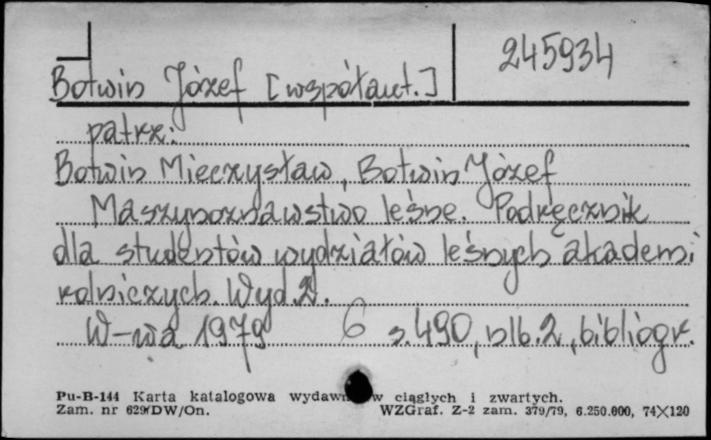 245934
Botwin Józef [współaut.]
patrz:
Botwin Mieczysław, Botwin Józef
Maszynoznawstwo leśne. Podręcznik
dla studentów wydziałów leśnych akademi
rolniczych. Wyd. 2.
W-wa 1979 6 s. 490, nlb. 2, bibliogr.
Pu-B-144 Karta katalogowa wydawn w ciągłych i zwartych.
Zam. nr 629/DW/On. WZGraf. Z-2 zam. 379/79, 6.250.000, 74×120